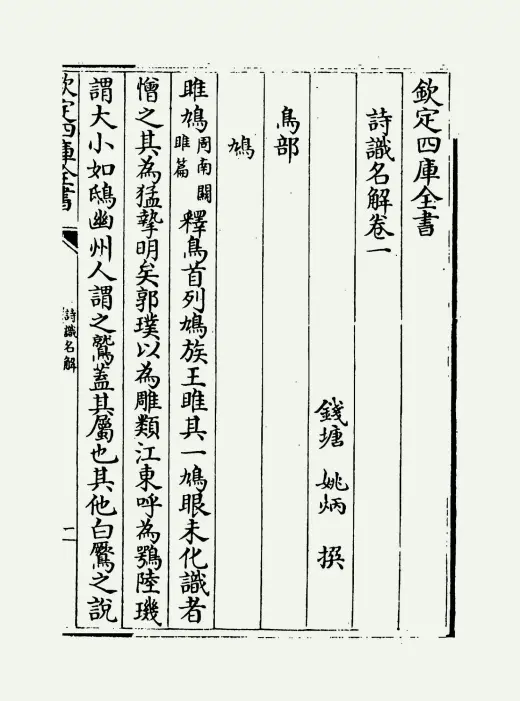 欽定四庫全書
詩識名解卷一
錢塘 姚炳 撰
鳥部
鳩
雎鳩周南關雎篇 釋鳥首列鳩族王雎其一鳩眼未化識者
憎之其為猛摯明矣郭璞以為雕類江東呼為鶚陸璣
謂大小如鴟幽州人謂之鷲蓋其屬也其他白鷢之說
欽定四庫全書
詩識名解